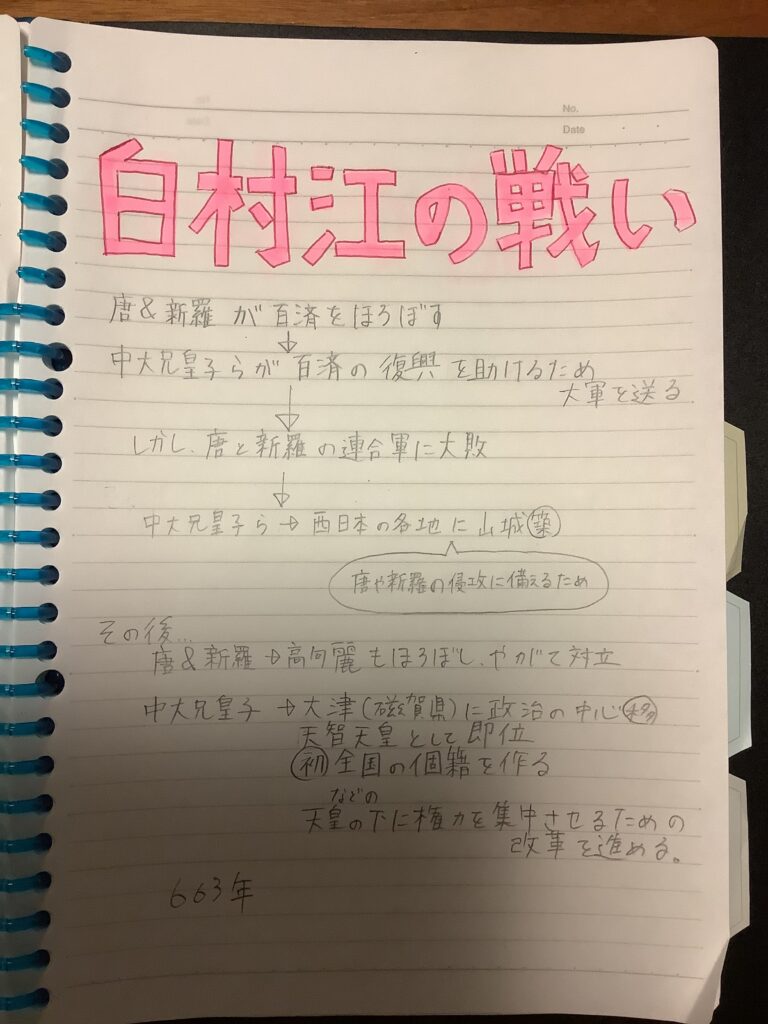 No.
Date
白村江の戦い
唐&新羅 が百済をほろぼす
↓
中大兄皇子らが百済の復興を助けるため
大軍を送る
↓
しかし、唐と新羅の連合軍に大敗
↓
中大兄皇子ら→西日本の各地に山城築
唐や新羅の侵攻に備えるため
その後…
唐&新羅→高句麗もほろぼし、やがて対立
中大兄皇子→大津(磁賀県)に政治の中心移
天智天皇として即位
初全国の個籍を作る
などの
天皇の下に権力を集中させるための
改革を進める。
663年